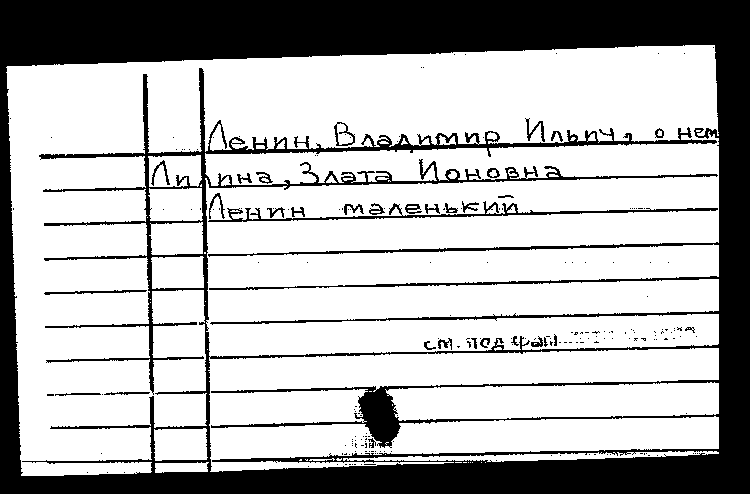 Ленин, Владимир Ильич, о нем
Лилина, Злата Ионовна
Ленин маленький.
см. под фам